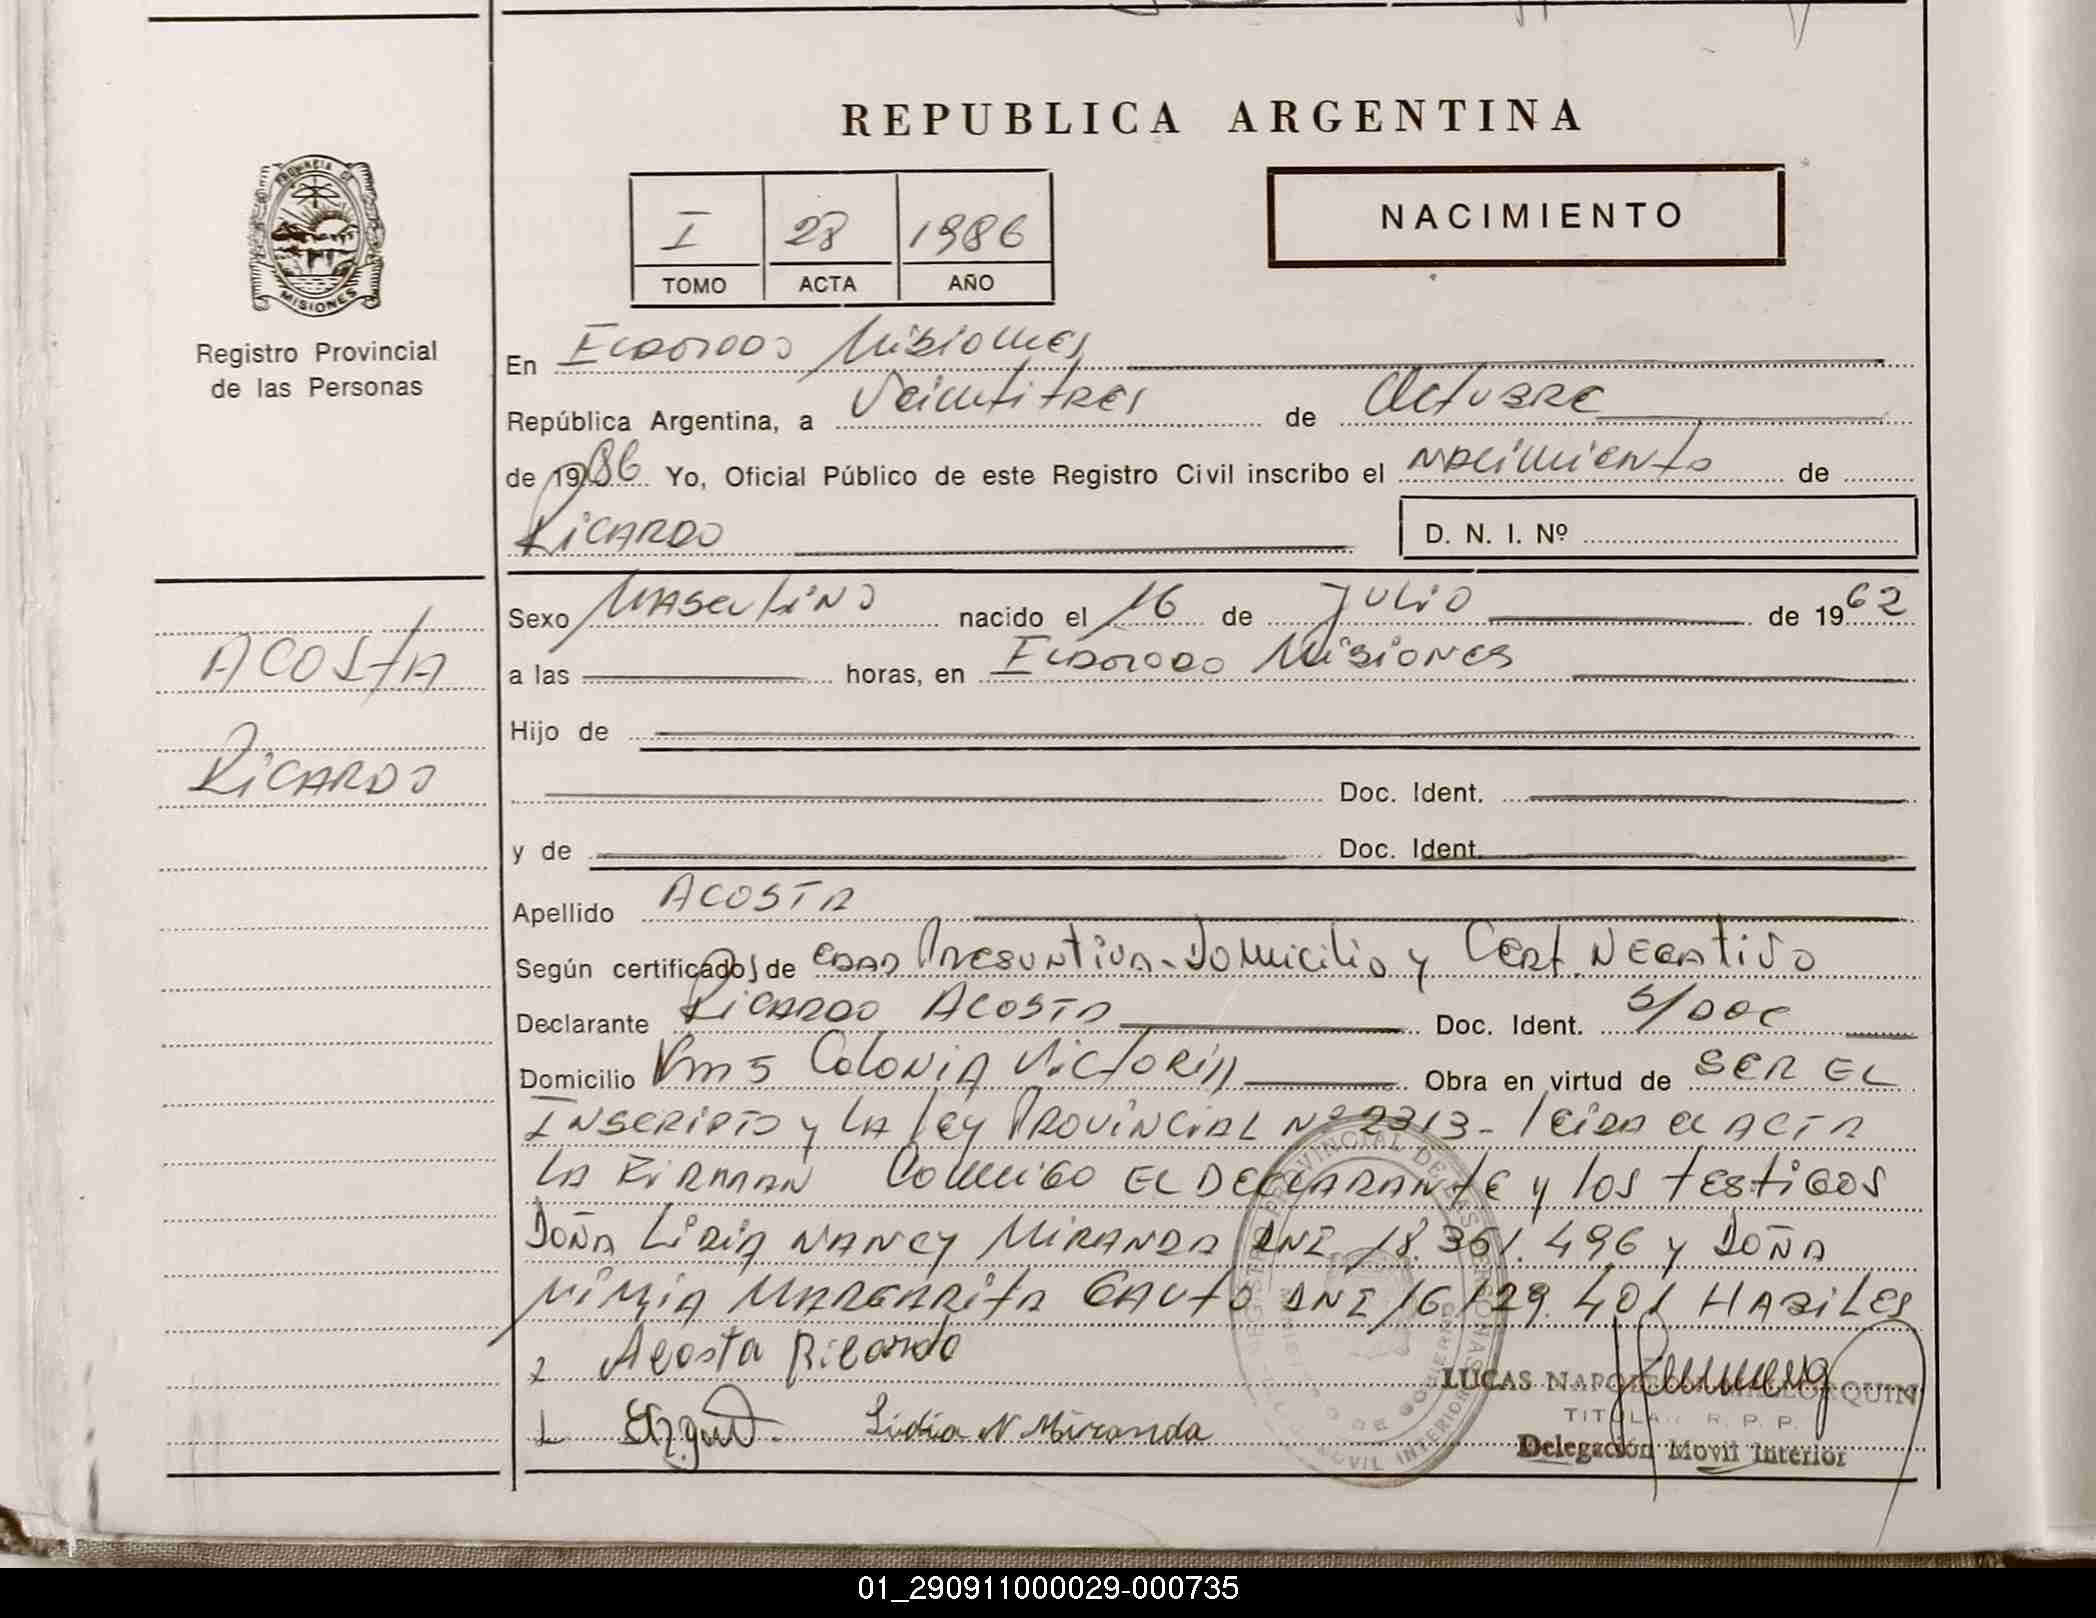 REPUBLICA ARGENTINA
PROVINCIA DE
MISIONES
Registro Provincial
de las Personas
I 28 1986
TOMO ACTA AÑO
NACIMIENTO
En Eldorado Misiones
República Argentina, a Veintitres de Octubre
de 1986 Yo, Oficial Público de este Registro Civil inscribo el nacimiento de
Ricardo
D. N. I. Nº
ACOSTA
RICARDO
Sexo Masculino nacido el 16 de Julio de 1962
a las horas, en Eldorado Misiones
Hijo de
Doc. Ident.
y de Doc. Ident.
Apellido ACOSTA
Según certificado/s de edad Presuntiva - Domicilio y Cert. Negativo
Declarante Ricardo Acosta Doc. Ident. S/Doc
Domicilio Km 5 Colonia Victoria Obra en virtud de SER EL
Inscripto y la Ley Provincial Nº 2313 - leida el acta
la firman conmigo el declarante y los testigos
Doña Lidia Nancy Miranda DNI 18.361.496 y Doña
Mirian Margarita Gauto DNI 16.129.401 Habiles
Acosta Ricardo
Lidia N Miranda
LUCAS
TITULAR R. P. P.
Delegación Movil Interior
01_290911000029-000735